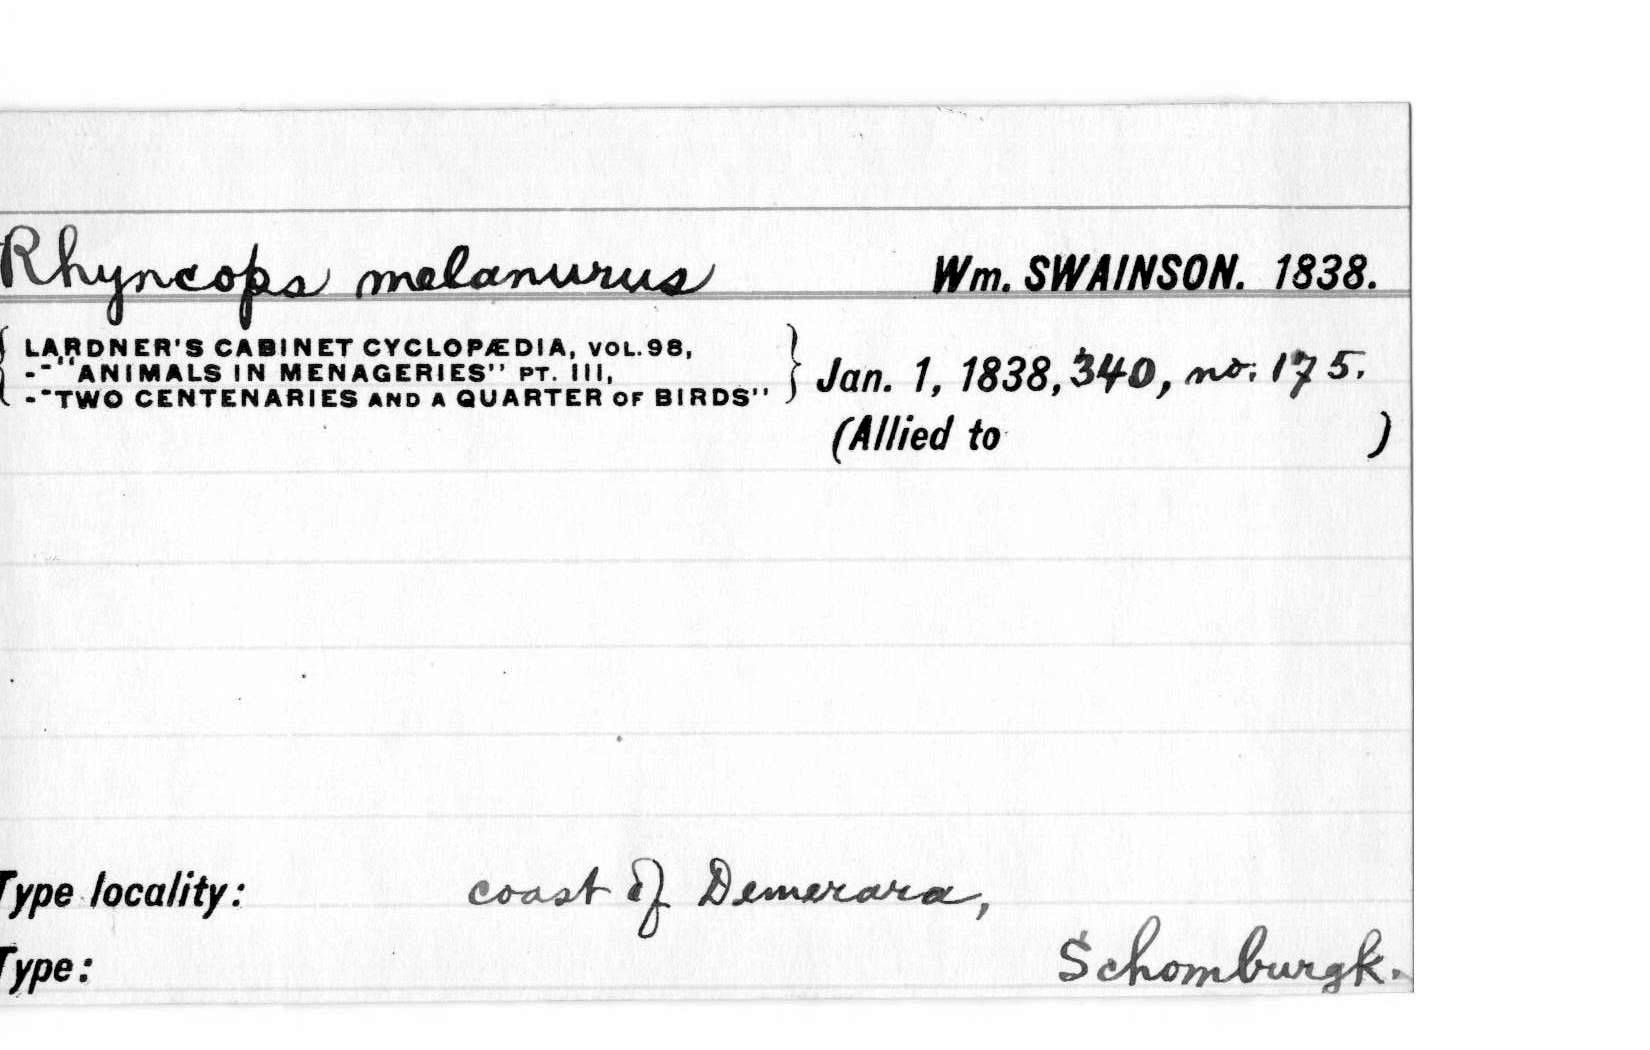 Rhyncops melanurus Wm. SWAINSON. 1838.
{ LARDNER'S CABINET CYCLOPÆDIA, VOL. 98, }
-- "ANIMALS IN MENAGERIES" PT. III,
-- "TWO CENTENARIES AND A QUARTER OF BIRDS"
Jan. 1, 1838, 340, no. 175.
(Allied to )
Type locality: coast of Demerara,
Type: Schomburgk.